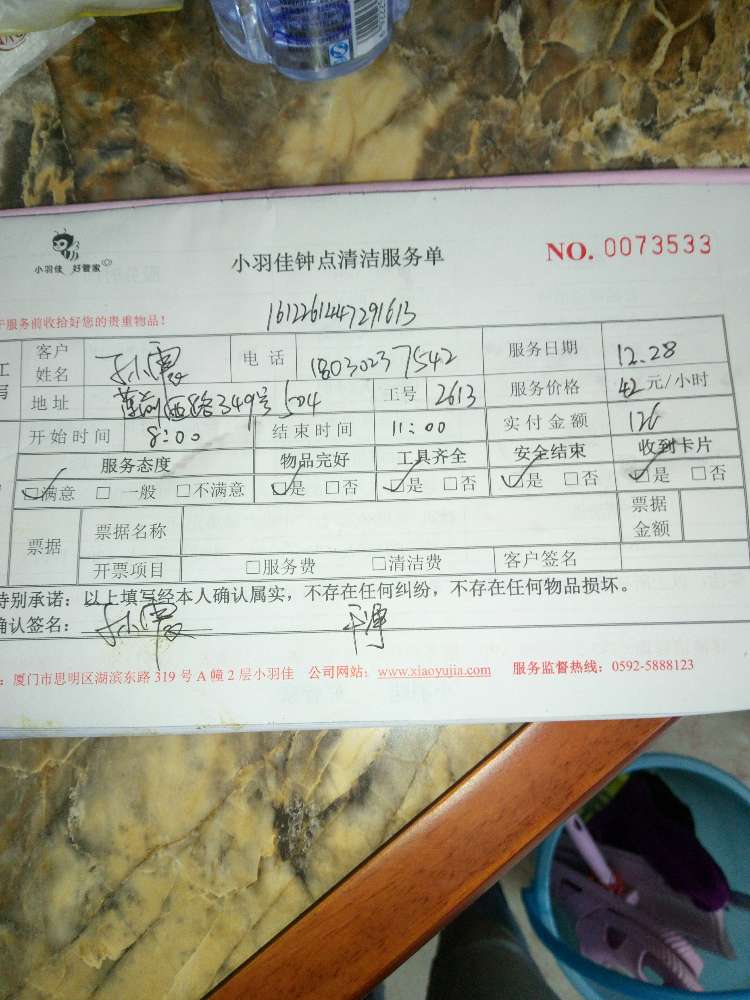 小羽佳 好管家
小羽佳钟点清洁服务单
NO. 0073533
于服务前收拾好您的贵重物品！
1612261447291613
客户姓名 电话 18030237542 服务日期 12.28
地址 349号504 工号 2613 服务价格 42元/小时
开始时间 8:00 结束时间 11:00 实付金额 126
服务态度 物品完好 工具齐全 安全结束 收到卡片
☑满意 □一般 □不满意 ☑是 □否 ☑是 □否 ☑是 □否 ☑是 □否
票据 票据名称 票据金额
开票项目 □服务费 □清洁费 客户签名
特别承诺：以上填写经本人确认属实，不存在任何纠纷，不存在任何物品损坏。
确认签名：
：厦门市思明区湖滨东路319号A幢2层小羽佳 公司网站：www.xiaoyujia.com 服务监督热线：0592-5888123